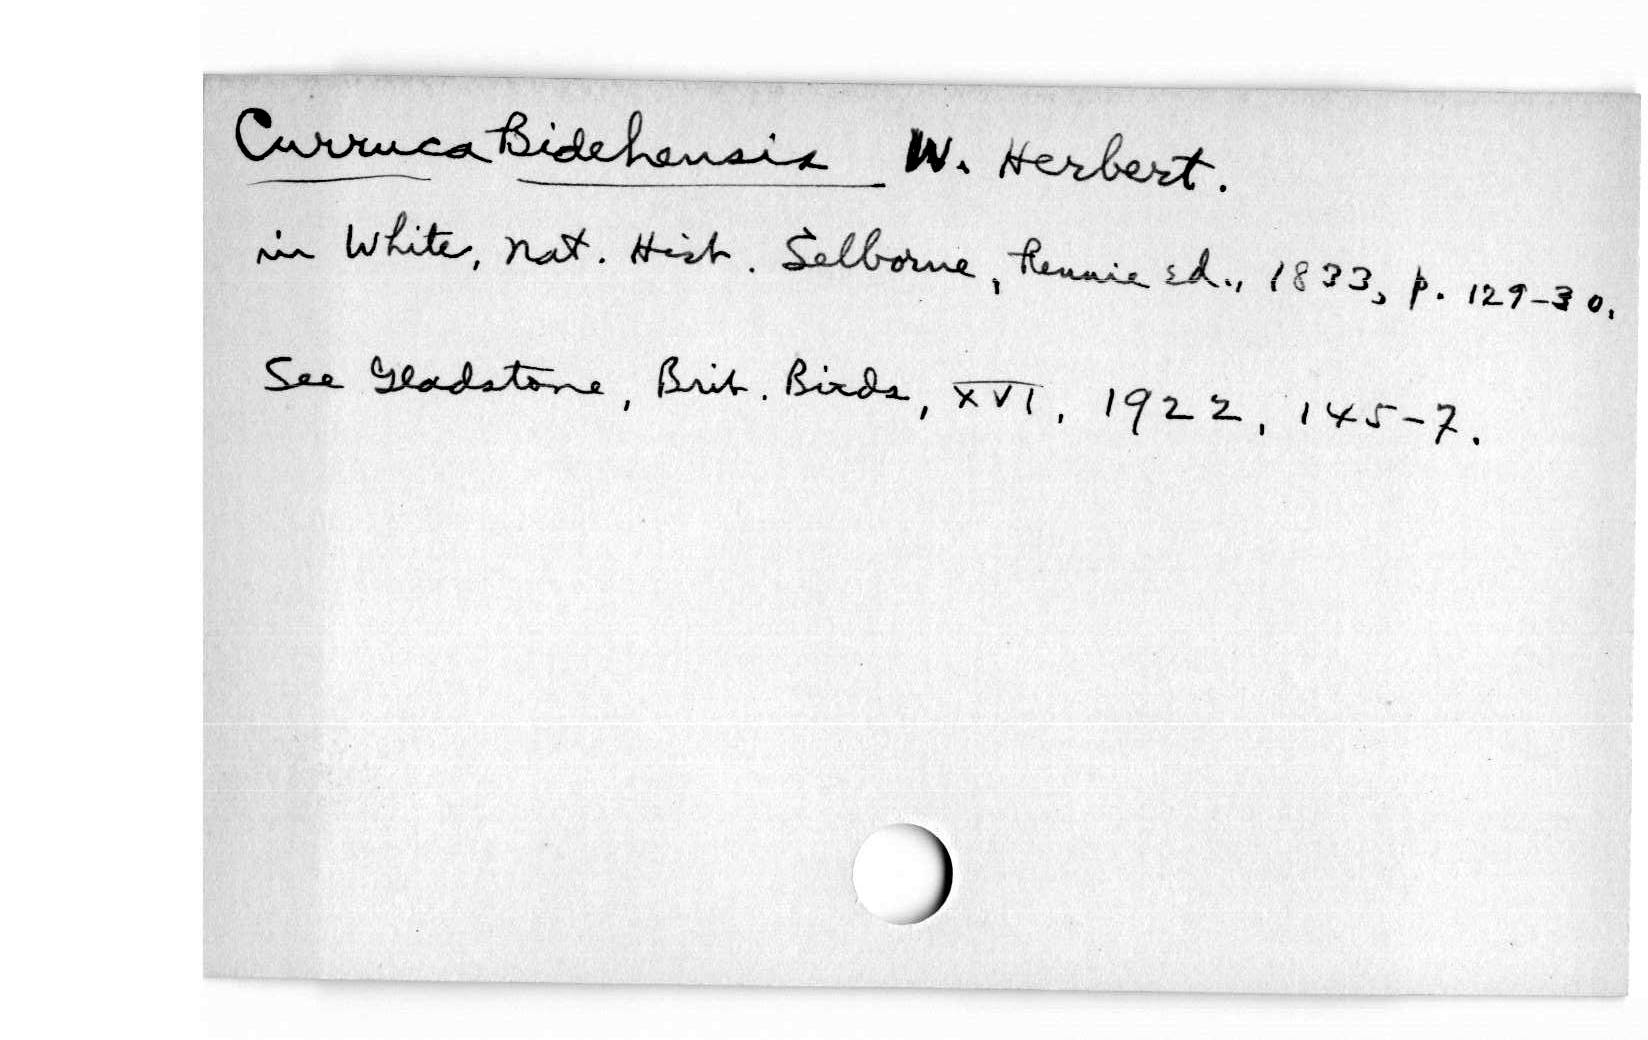 Curruca Bidehensis W. Herbert.
in White, Nat. Hist. Selborne, Rennie ed., 1833, p. 129-30.
See Gladstone, Brit. Birds, XVI, 1922, 145-7.